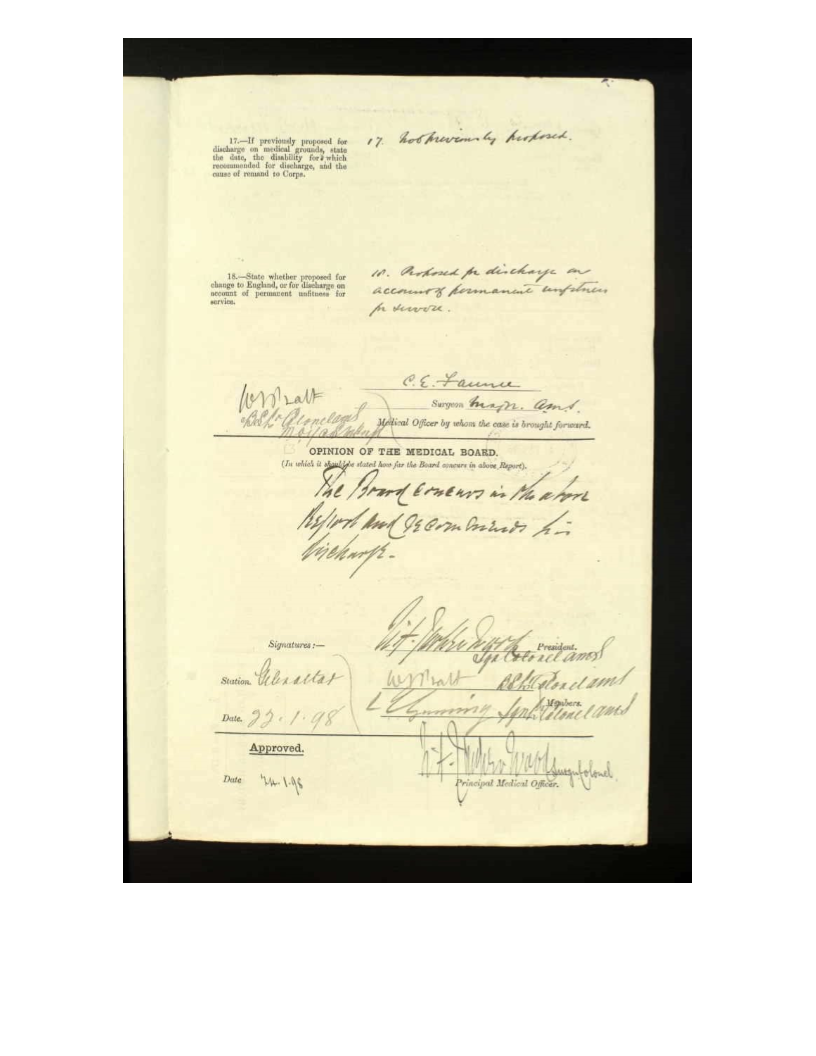 17.—If previously proposed for
discharge on medical grounds, state
the date, the disability for which
recommended for discharge, and the
cause of remand to Corps.
17. Not previously proposed.
18.—State whether proposed for
change to England, or for discharge on
account of permanent unfitness for
service.
18. Proposed for discharge on
account of permanent unfitness
for service.
C. E. Faunce
Surgeon Major. AMS.
W J Pratt
Medical Officer by whom the case is brought forward.
OPINION OF THE MEDICAL BOARD.
(In which it should be stated how far the Board concurs in above Report).
The Board concurs in the above
Report and recommends his
discharge.
Signatures:—
President.
Colonel AMS
Station. Gibraltar
W J Pratt
Colonel AMS
Members.
Date. 22.1.98
Gunning
Colonel AMS
Approved.
Wood Surgn Colonel.
Date 24.1.98
Principal Medical Officer.